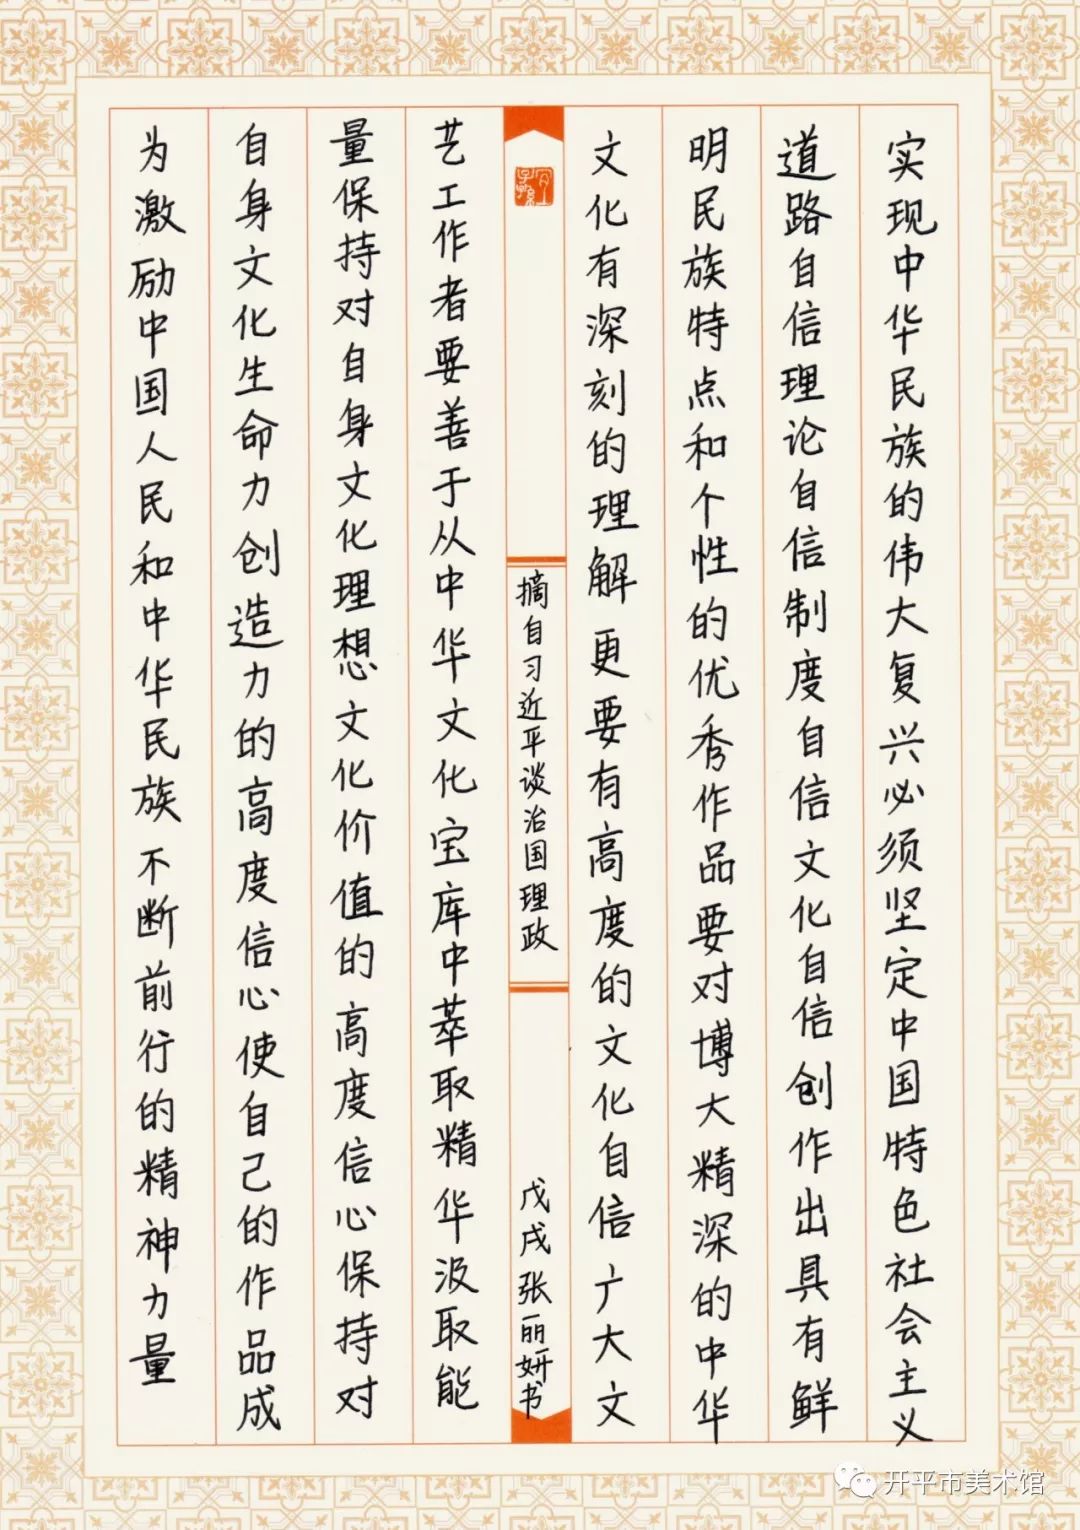 实现中华民族的伟大复兴必须坚定中国特色社会主义
道路自信理论自信制度自信文化自信创作出具有鲜
明民族特点和个性的优秀作品要对博大精深的中华
文化有深刻的理解更要有高度的文化自信广大文
艺工作者要善于从中华文化宝库中萃取精华汲取能
量保持对自身文化理想文化价值的高度信心保持对
自身文化生命力创造力的高度信心使自己的作品成
为激励中国人民和中华民族不断前行的精神力量
摘自习近平谈治国理政
戊戌张丽妍书
开平市美术馆